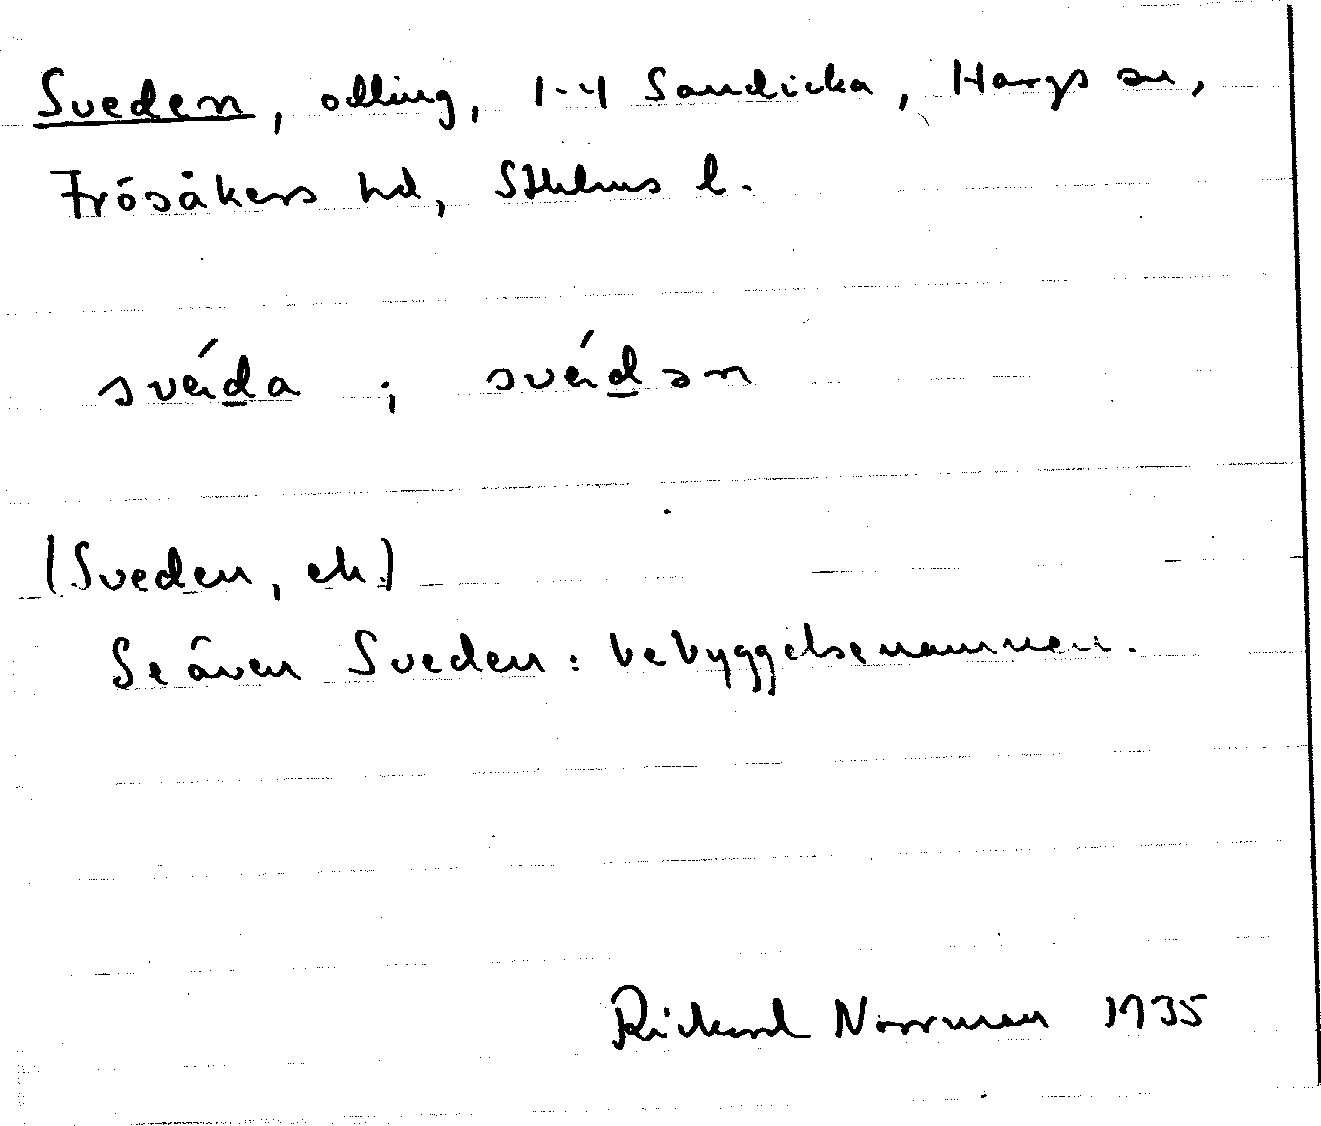 Sveden, odling, 1-4 Sandicka, Hargs sn,
Frösåkers hd, Sthlms l.
svéda ; svédən
(Sveden, ek)
Se även Sveden: bebyggelsenamnen.
Rickard Norrman 1935